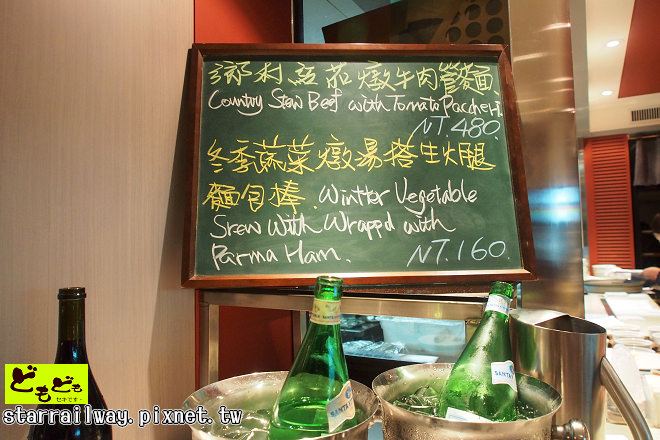 鄉村紅茄燉牛肉管麵
Country Stew Beef with Tomato Paccheri.
NT.480.
冬季蔬菜燉湯搭生火腿
麵包棒. Winter Vegetable
Stew With Wrappd with
Parma Ham. NT.160.
SANTA
SANTA
どもども
starrailway.pixnet.tw